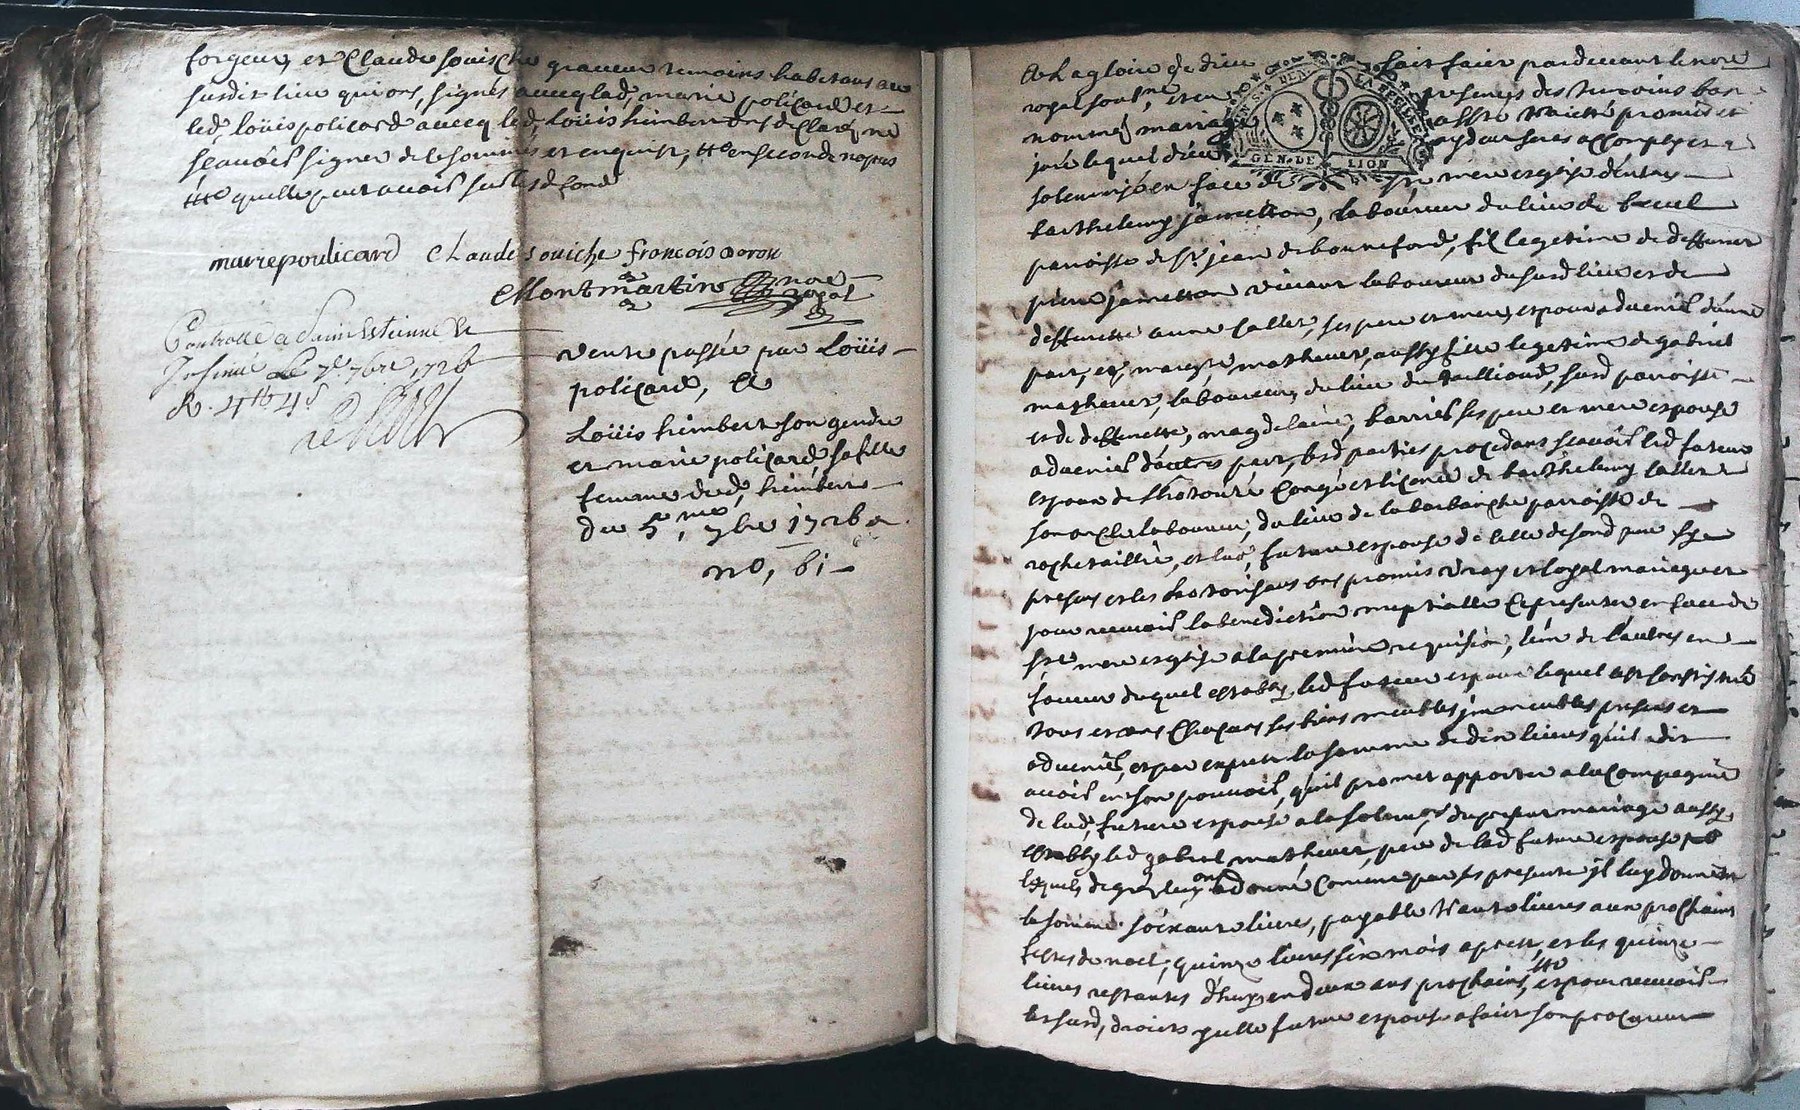 forgeur, et Claude Souiche graveur temoins habitans au
susdit lieu qui ont, signés avecq lad, marie policard et
led, loüis policard avecq led, Loüis himbert ont declaré ne
scavoir signer de ce sommés et enquis, en seconde nopces
quelle peut avoir sur les fond
marie poulicard Claude Souiche francois
Montmartin nore royal
Controllé a Saint Etienne et
Insinué Le 7e 7bre 1726
R. 4tt 4s
vente passée par Loüis
policard, et
Loüis himbert son gendre
et marie policard, sa fille
femme dud, himbert
du 5me, 7bre 1726
no, 61
A La gloire de dieu soit fait par devant le nore
royal soubné, et en presence des temoins bas
nommés mariage traitté promis et
juré lequel dieu aydant sera accomply et
solemnisé en face de ste mere esglise d'entre
barthelemy jametton, laboureur du lieu de
parroisse de St jean de bonnefond, fil legetime de deffunct
piere jametton vivant laboureur dususd lieu et de
deffunctte anne sallet, ses pere et mere, espoux advenir d'une
part, et, matheuet, aussy fille legetime de gabriel
matheuet, laboureur, du lieu du susd parroisse
et de deffunctte, magdelaine, barriel ses pere et mere espouse
advenir d'autres part, lesd parties procedant scavoir led futeur
espoux de Lhotorité congé et licence de barthelemy sallet
son oncle laboureur, du lieu de la barbanche parroisse de
rochetaillié, et lad, future espouse de celle desond pere
presens et les hotorisans ont promis vray et loyal mariage et
pour recevoir la benediction nuptialle se presenter en face de
ste mere esglise a la premiere requisition, l'un de l'autres en
faveur duquel estably led futeur espoux lequel c'est constitué
tous et uns chacuns ses biens meubles immeubles presens et
advenir, et par exprès la somme de dix livres qu'il a dit
avoir en son pouvoir, qu'il promet apporter a la compagnie
de lad, future espouse a la solemnité du present mariage aussy
estably led gabriel matheuet, pere de lad future espouse
lequel, de gré, luy a donné comme par ces presente il luy donne
la somme soixante livres, payable trante livres aux prochaines
festes de noel, quinze livres six mois apres, et les quinze
livres restantes d'huy en deux ans prochains, et pour recevoir
lessusd, droits icelle future espouse a fait son procureur